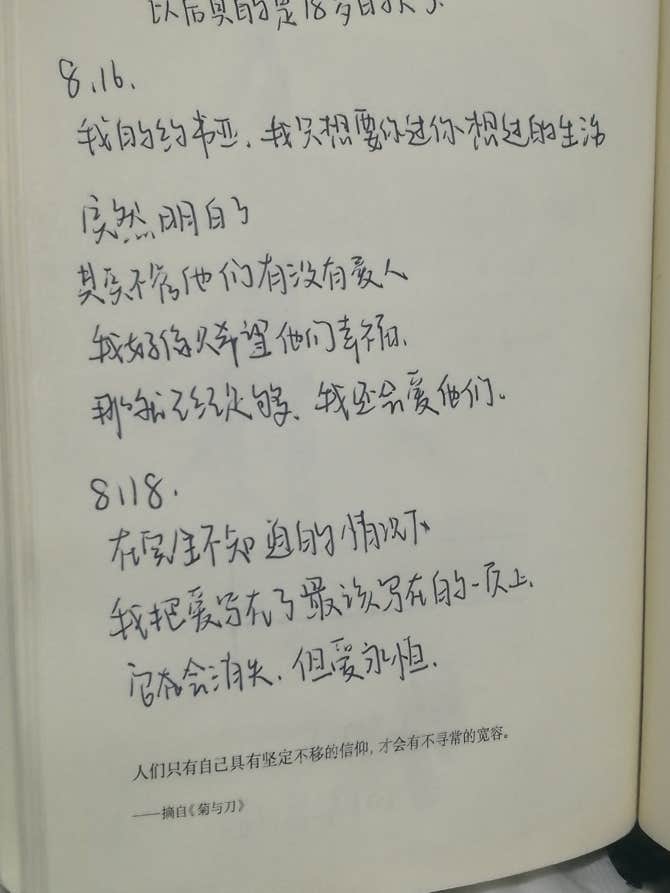 以后真的是18岁的大了.
8.16.
我的约书亚.我只想要你过你想过的生活
突然明白了
其实不管他们有没有爱人
我好像只希望他们幸福.
那就已经足够.我还会爱他们。
8.18.
在完全不知道的情况下
我把爱写在了最该写在的一页上.
会消失.但爱永恒.
人们只有自己具有坚定不移的信仰,才会有不寻常的宽容。
——摘自《菊与刀》